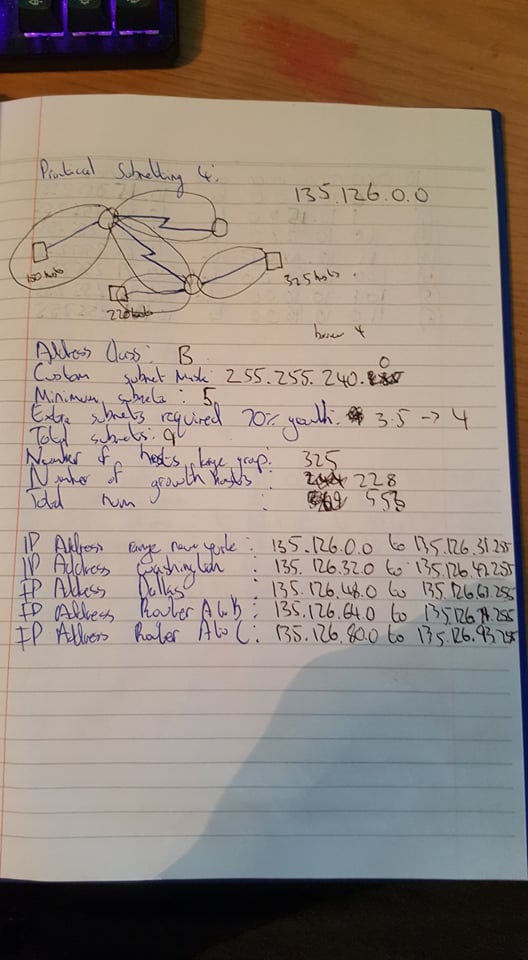 Practical Subnetting 4:
135.126.0.0
150 hosts
325 hosts
220 hosts
borrow 4
Address Class: B
0
Custom subnet mask: 255.255.240.
Minimum subnets: 5
Extra subnets required 70% growth: 3.5 → 4
Total subnets: 9
Number of hosts large group: 325
Number of growth hosts: 228
Total num : 553
IP Address range new yorke: 135.126.0.0 to 135.126.31.255
IP Address Washington: 135.126.32.0 to 135.126.47.255
IP Address Dallas : 135.126.48.0 to 135.126.63.255
IP Address Router A to B : 135.126.64.0 to 135.126.79.255
IP Address Router A to C : 135.126.80.0 to 135.126.93.255